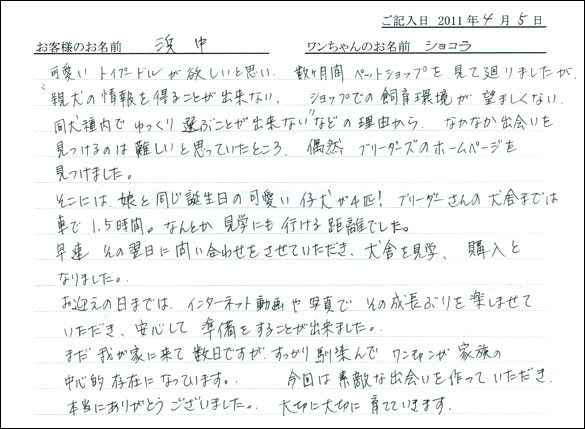 ご記入日 2011年4月5日
お客様のお名前 浜中 ワンちゃんのお名前 ショコラ
可愛い トイプードルが欲しいと思い、数ヶ月間 ペットショップを見て廻りましたが、
"親犬の情報を得ることが出来ない、 ショップでの飼育環境が望ましくない、
同犬種内でゆっくり選ぶことが出来ない"などの理由から、なかなか出会いを
見つけるのは難しいと思っていたところ、偶然、ブリーダーズのホームページを
見つけました。
そこには、娘と同じ誕生日の可愛い仔犬が4匹! ブリーダーさんの犬舎までは
車で1.5時間。なんとか見学にも行ける距離でした。
早速 その翌日に問い合わせをさせていただき、犬舎を見学、購入と
なりました。
お迎えの日までは、インターネット動画や写真で その成長ぶりを楽しませて
いただき、安心して 準備をすることが出来ました。
まだ我が家に来て数日ですが、すっかり馴染んで ワンちゃんが家族の
中心的存在になっています。 今回は素敵な出会いを作っていただき、
本当にありがとうございました。 大切に大切に育てていきます。